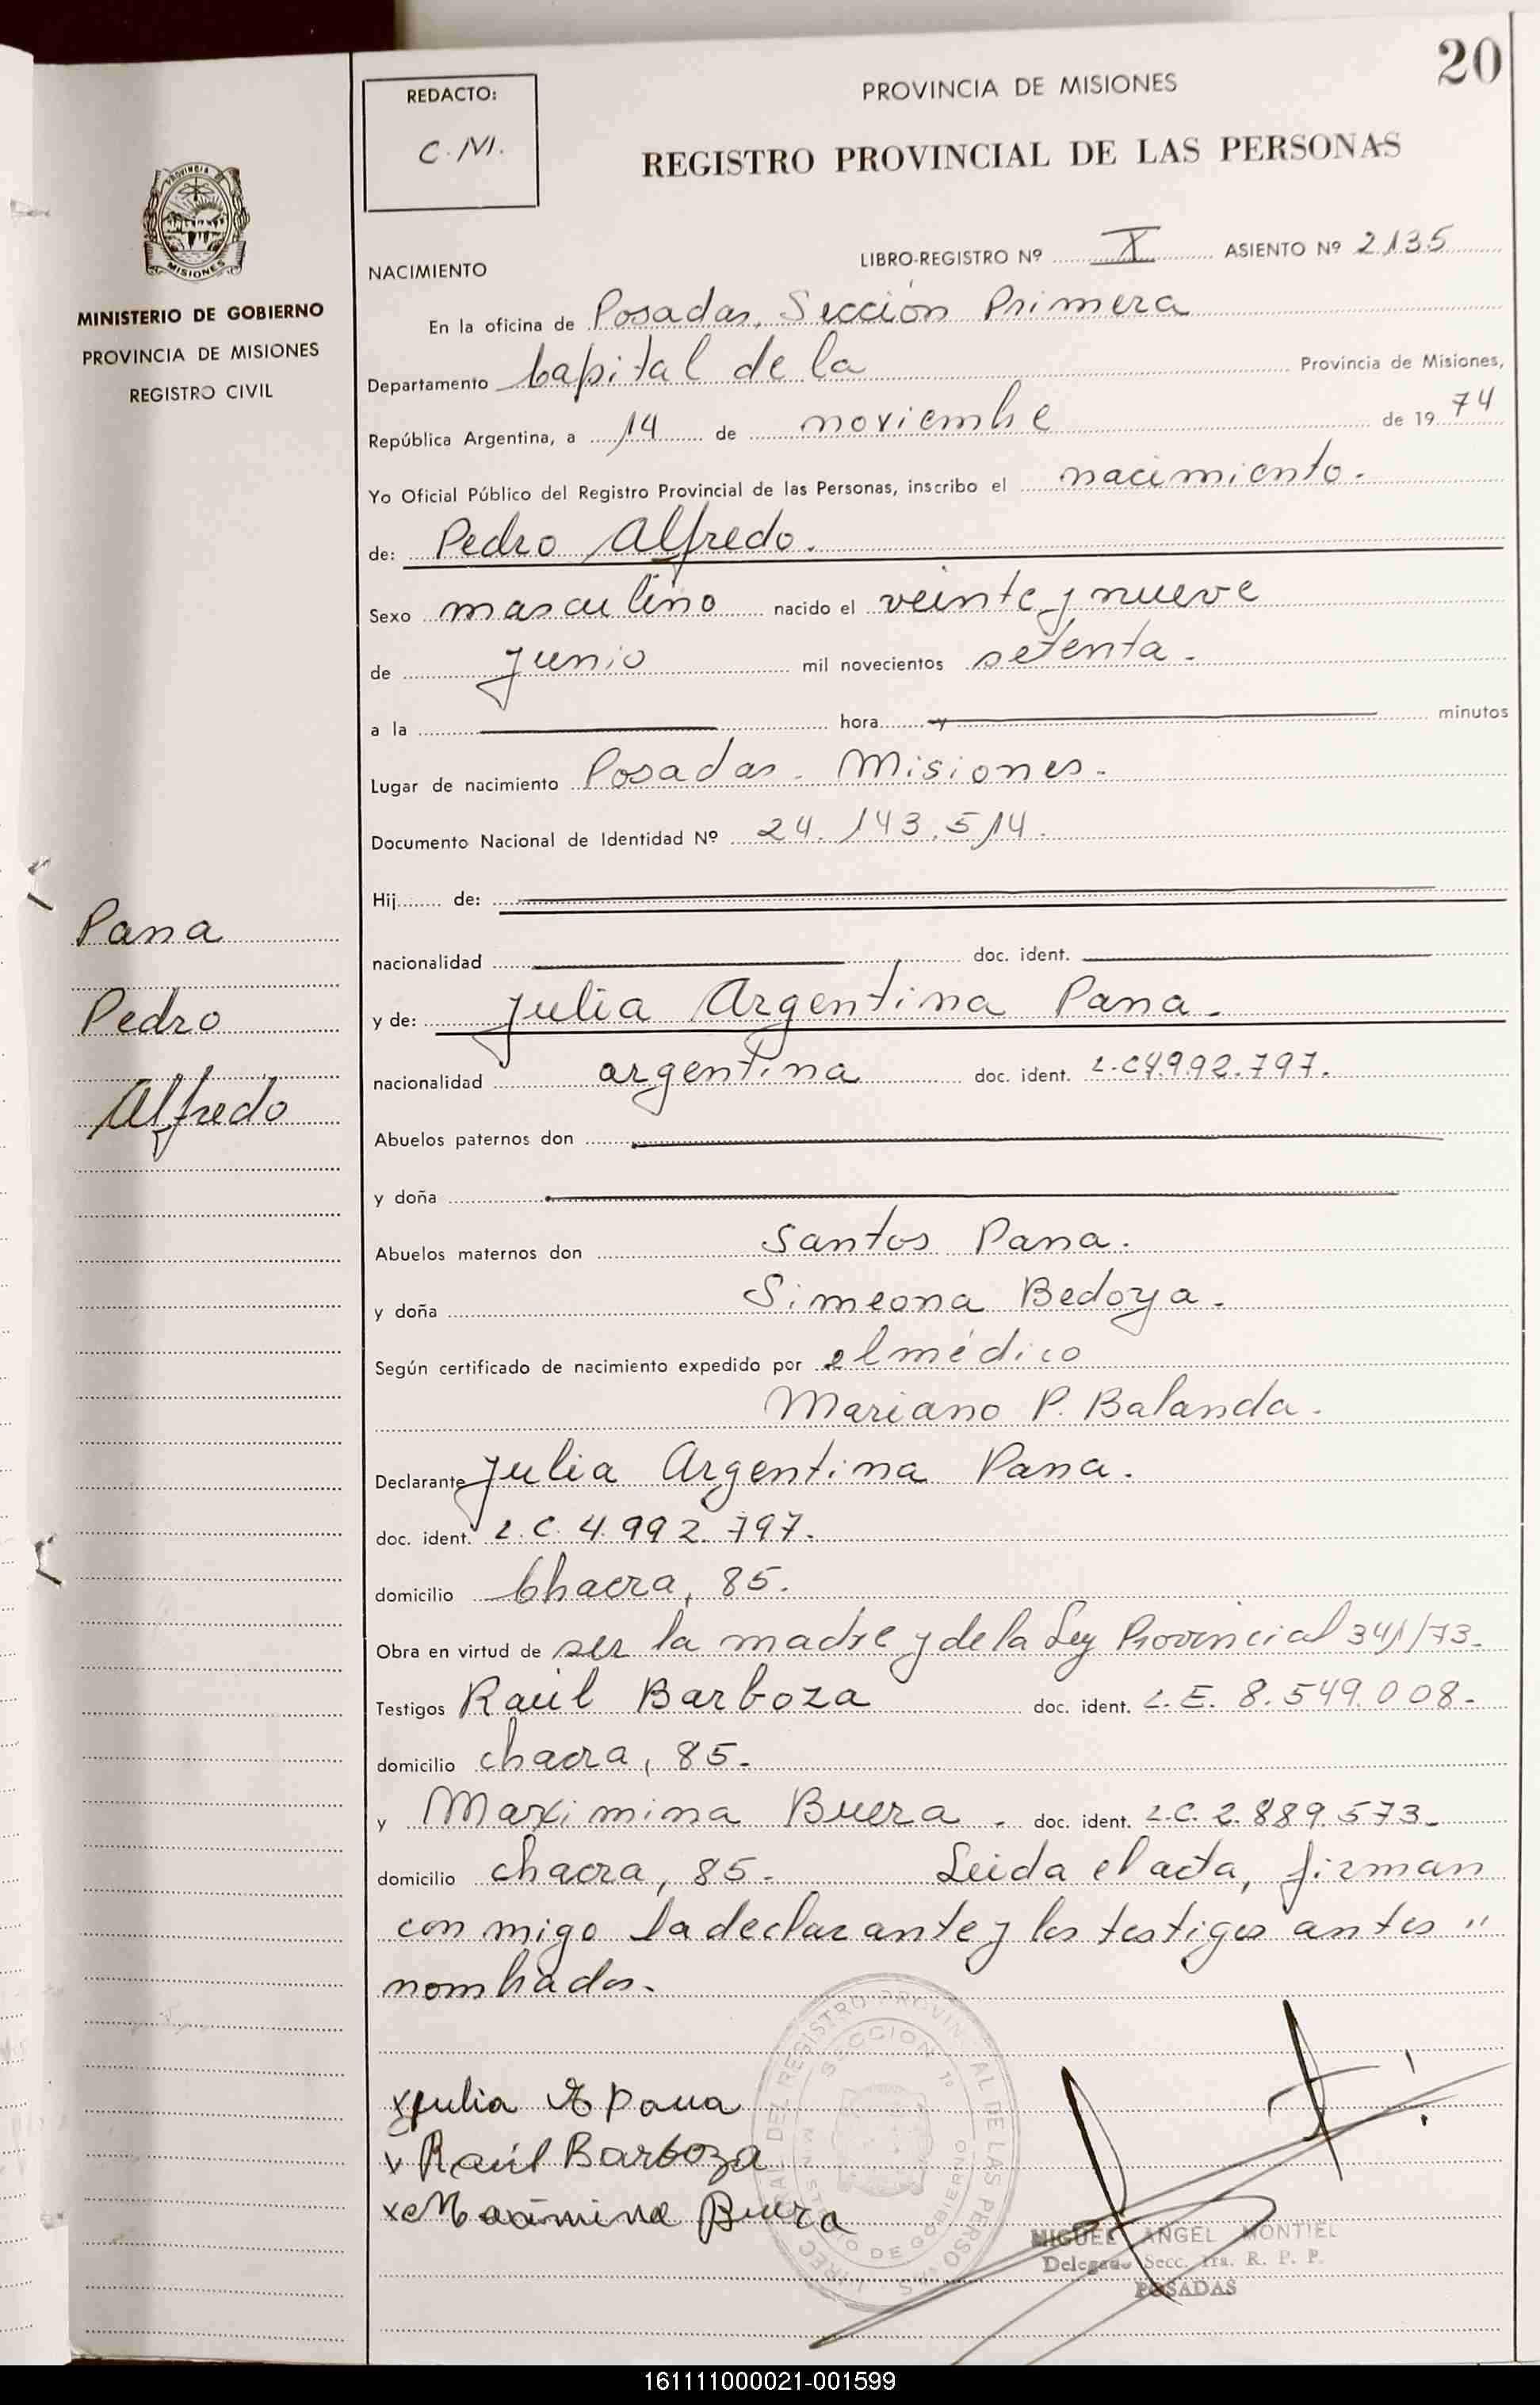 20
REDACTO:
C. M.
PROVINCIA DE MISIONES
REGISTRO PROVINCIAL DE LAS PERSONAS
PROVINCIA DE
MISIONES
MINISTERIO DE GOBIERNO
PROVINCIA DE MISIONES
REGISTRO CIVIL
NACIMIENTO
LIBRO-REGISTRO Nº X ASIENTO Nº 2135
En la oficina de Posadas, Sección Primera
Departamento Capital de la Provincia de Misiones,
República Argentina, a 14 de noviembre de 19 74
Yo Oficial Público del Registro Provincial de las Personas, inscribo el nacimiento.
de: Pedro Alfredo.
Sexo masculino nacido el veinte y nueve
de junio mil novecientos setenta.
a la hora y minutos
Lugar de nacimiento Posadas. Misiones.
Documento Nacional de Identidad Nº 24.143.514.
Hij de:
nacionalidad doc. ident.
y de: Julia Argentina Pana.
nacionalidad argentina doc. ident. L.C 4992.797.
Abuelos paternos don
y doña
Abuelos maternos don Santos Pana.
y doña Simeona Bedoya.
Según certificado de nacimiento expedido por el médico
Mariano P. Balanda.
Declarante Julia Argentina Pana.
doc. ident. L.C. 4.992.797.
domicilio Chacra, 85.
Obra en virtud de ser la madre y de la Ley Provincial 341/73.
Testigos Raúl Barboza doc. ident. L.E. 8.549.008.
domicilio chacra, 85.
y Maximina Buera. doc. ident. L.C. 2.889.573.
domicilio chacra, 85. Leida el acta, firman
con migo la declarante y los testigos antes "
nombrados.
Pana
Pedro
Alfredo
x Julia A Pana
x Raúl Barboza
x Maximina Buera
DEL REGISTRO PROVINCIAL DE LAS PERSONAS
SECCION 1º
MINISTERIO DE GOBIERNO
MIGUEL ANGEL MONTIEL
Delegado Secc. 1ra. R. P. P.
POSADAS
161111000021-001599